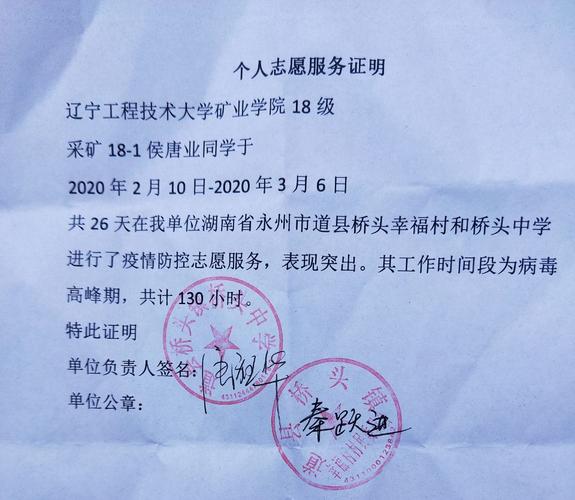 个人志愿服务证明
辽宁工程技术大学矿业学院 18 级
采矿 18-1 侯唐业同学于
2020 年 2 月 10 日-2020 年 3 月 6 日
共 26 天在我单位湖南省永州市道县桥头幸福村和桥头中学
进行了疫情防控志愿服务，表现突出。其工作时间段为病毒
高峰期，共计 130 小时。
特此证明
单位负责人签名:
单位公章：
道县桥头镇桥头中学
道县桥头镇
秦跃进